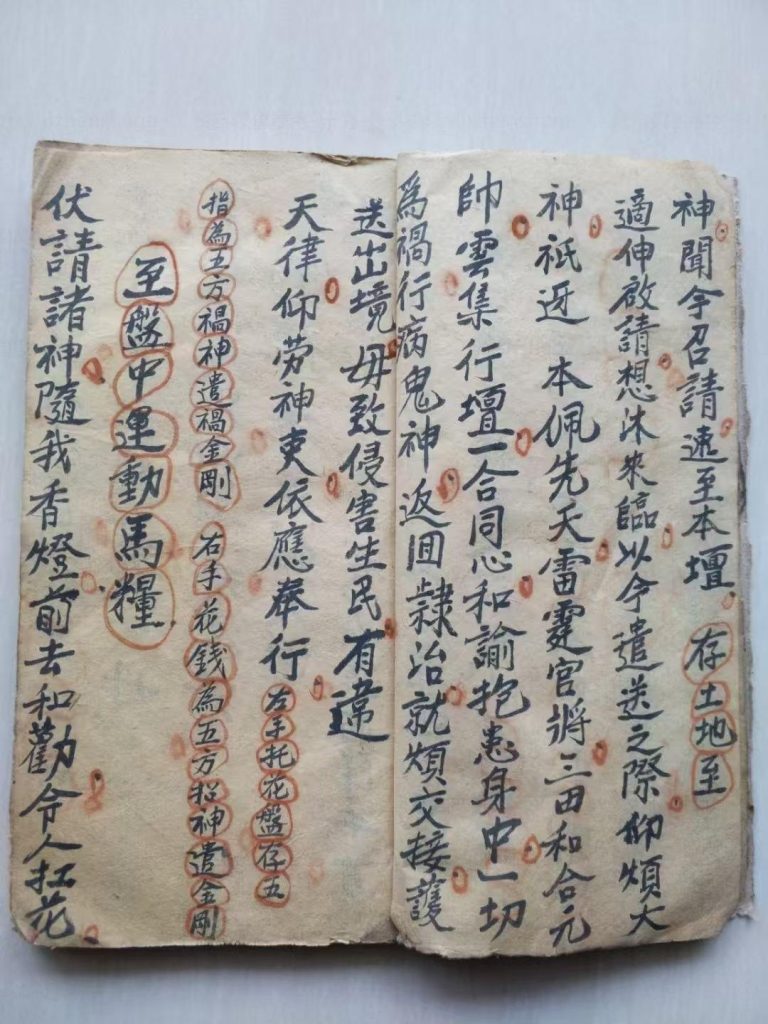 神聞今召請速至本壇 存土地至
適伸啟請想沐來臨以今遣送之際仰煩大
神祇迓 本佩先天雷霆官將三田和合元
帥雲集行壇一合同心和諭抱患身中一切
為禍行病鬼神返回隸治就煩交接護
送出境毋致侵害生民有違
天律仰劳神吏依應奉行 右手托花盤存五
指為五方禍神遣禍金剛 右手花錢為五方招神遣金剛
至盤中運動馬糧
伏請諸神隨我香燈前去和勸令人扛花